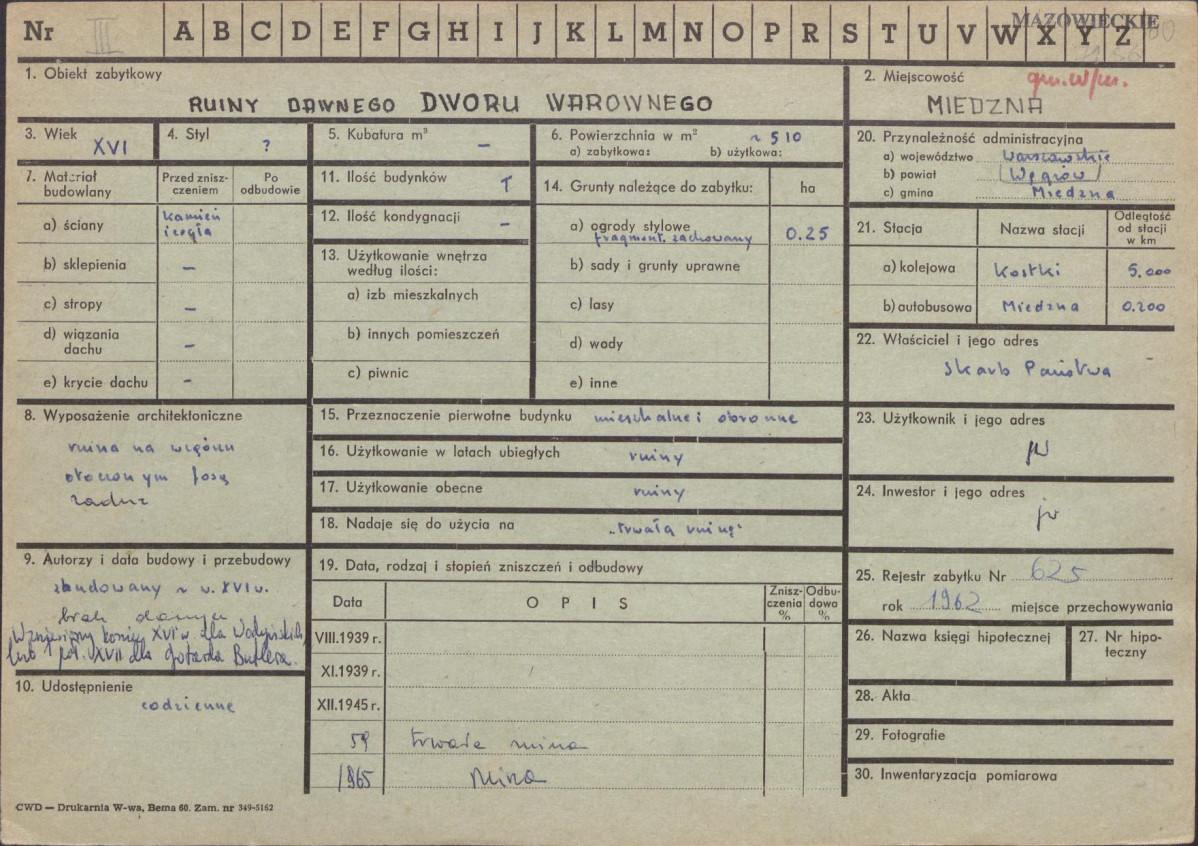 Nr III A B C D E F G H I J K L M N O P R S T U V W X Y Z
MAZOWIECKIE
1. Obiekt zabytkowy
RUINY DAWNEGO DWORU WAROWNEGO
2. Miejscowość
gm. w/m.
MIEDZNA
3. Wiek
XVI
4. Styl
?
5. Kubatura m³
–
6. Powierzchnia w m² ~ 510
a) zabytkowa: b) użytkowa:
7. Materiał budowlany
Przed znisz-
czeniem
Po
odbudowie
a) ściany kamień
i cegła
b) sklepienia –
c) stropy –
d) wiązania
dachu –
e) krycie dachu –
8. Wyposażenie architektoniczne
ruina na wzgórzu
otoczonym fosą
9. Autorzy i data budowy i przebudowy
zbudowany z w. XVI w.
brak danych
Wzniesiony koniec XVI w. dla Wodyńskich
lub 1 poł. XVII dla Gotarda Butlera.
10. Udostępnienie
codzienne
11. Ilość budynków 1
12. Ilość kondygnacji –
13. Użytkowanie wnętrza
według ilości:
a) izb mieszkalnych
b) innych pomieszczeń
c) piwnic
14. Grunty należące do zabytku: ha
a) ogrody stylowe
fragment. zachowany 0.25
b) sady i grunty uprawne
c) lasy
d) wody
e) inne
15. Przeznaczenie pierwotne budynku mieszkalne i obronne
16. Użytkowanie w latach ubiegłych ruiny
17. Użytkowanie obecne ruiny
18. Nadaje się do użycia na „trwałą ruinę"
19. Data, rodzaj i stopień zniszczeń i odbudowy
Data O P I S Znisz-
czenia
% Odbu-
dowa
%
VIII.1939 r.
XI.1939 r.
XII.1945 r.
59 trwała ruina
1965 ruina
20. Przynależność administracyjna
a) województwo Warszawskie
b) powiat Węgrów
c) gmina Miedzna
21. Stacja Nazwa stacji Odległość
od stacji
w km
a) kolejowa Kostki 5.000
b) autobusowa Miedzna 0.200
22. Właściciel i jego adres
Skarb Państwa
23. Użytkownik i jego adres
jw
24. Inwestor i jego adres
jw
25. Rejestr zabytku Nr 625
rok 1962 miejsce przechowywania
26. Nazwa księgi hipotecznej
27. Nr hipo-
teczny
28. Akta
29. Fotografie
30. Inwentaryzacja pomiarowa
CWD — Drukarnia W-wa, Bema 60. Zam. nr 349-5162